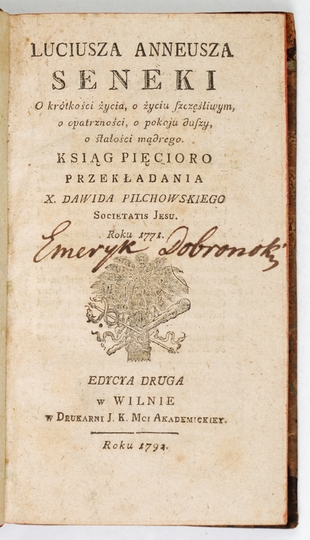 LUCIUSZA ANNEUSZA
SENEKI
O krótkości życia, o życiu szczęśliwym,
o opatrzności, o pokoju duszy,
o stałości mądrego.
KSIĄG PIĘCIORO
PRZEKŁADANIA
X. DAWIDA PILCHOWSKIEGO
SOCIETATIS JESU.
Roku 1771.
Emeryk Dobronoki
EDYCYA DRUGA
w WILNIE
w DRUKARNI J. K. MCI AKADEMICKIEY.
Roku 1792.